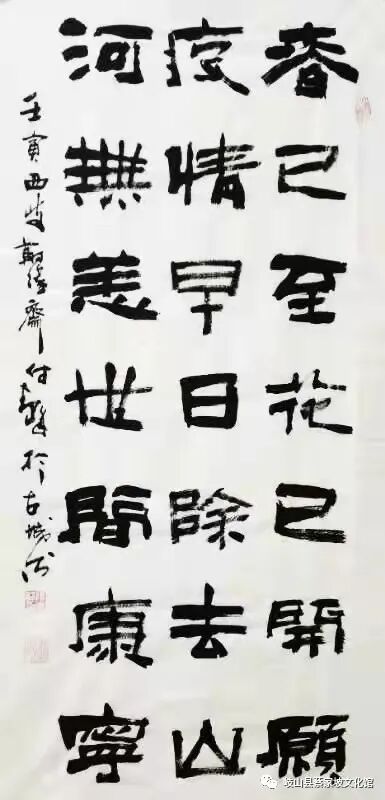 春已至花已開願
疫情早日除去山
河無恙世間康寧
壬寅西岐齋付於古城
岐山县蔡家坡文化馆